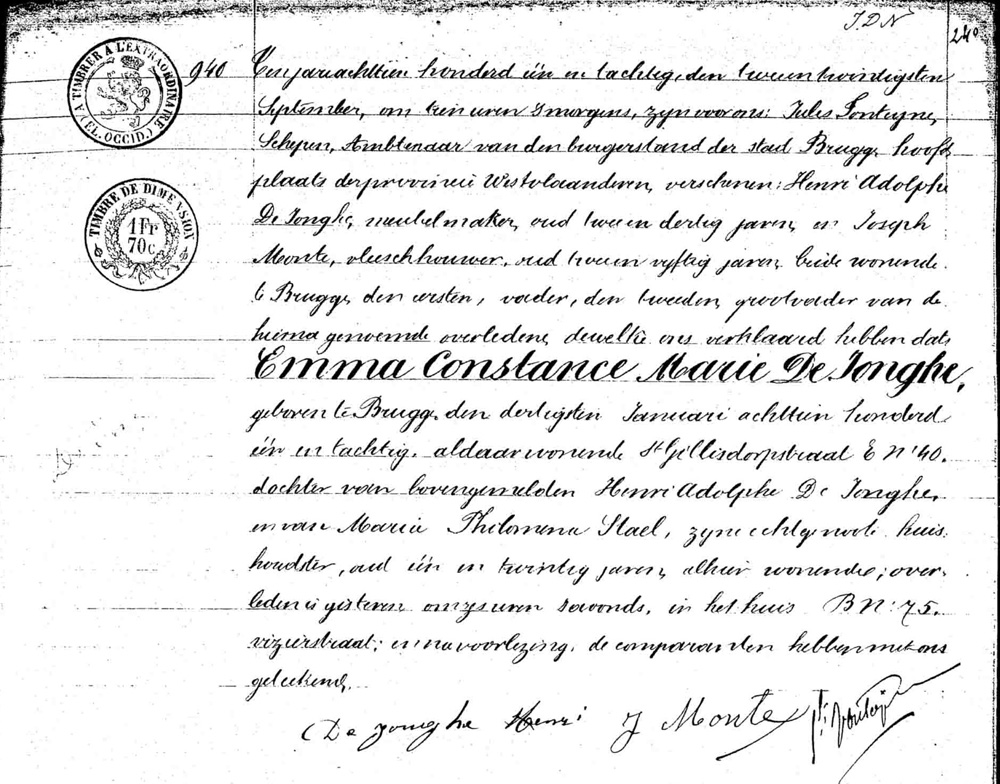 J D N
240
A TIMBRER A L'EXTRAORDINAIRE
(FL. OCCID.)
TIMBRE DE DIMENSION
1 Fr
70 c.
940 Ten jare achttien honderd één en tachtig, den tweeentwindigsten
September, om tien uren 's morgens, zyn voor ons: Jules Fonteyne,
Schepen, Ambtenaar van den burgerstand der stad Brugge, hoofd
plaats der provincie Westvlaanderen, verschenen: Henri Adolphe
De Jonghe, meubelmaker, oud tweeen dertig jaren, en Joseph
Monte, vleeschhouwer, oud tweeen vyftig jaren, beide wonende
te Brugge, den eersten, vader, den tweeden, grootvader van de
hierna genoemde overledene, dewelke ons verklaard hebben dat
Emma Constance Marie De Jonghe,
geboren te Brugge, den dertigsten Januari achttien honderd
één en tachtig, aldaar wonende St Gillisdorpstraat E N° 40.
dochter van bovengemelden Henri Adolphe De Jonghe,
en van Maria Philomena Stael, zyne echtgenoote huis-
houdster, oud één en twintig jaren, alhier wonende; over-
leden is gisteren om zes uren 's avonds, in het huis B N° 75.
vizierstraat; en na voorlezing, de comparanden hebben met ons
geteekend.
De Jonghe Henri J Monte